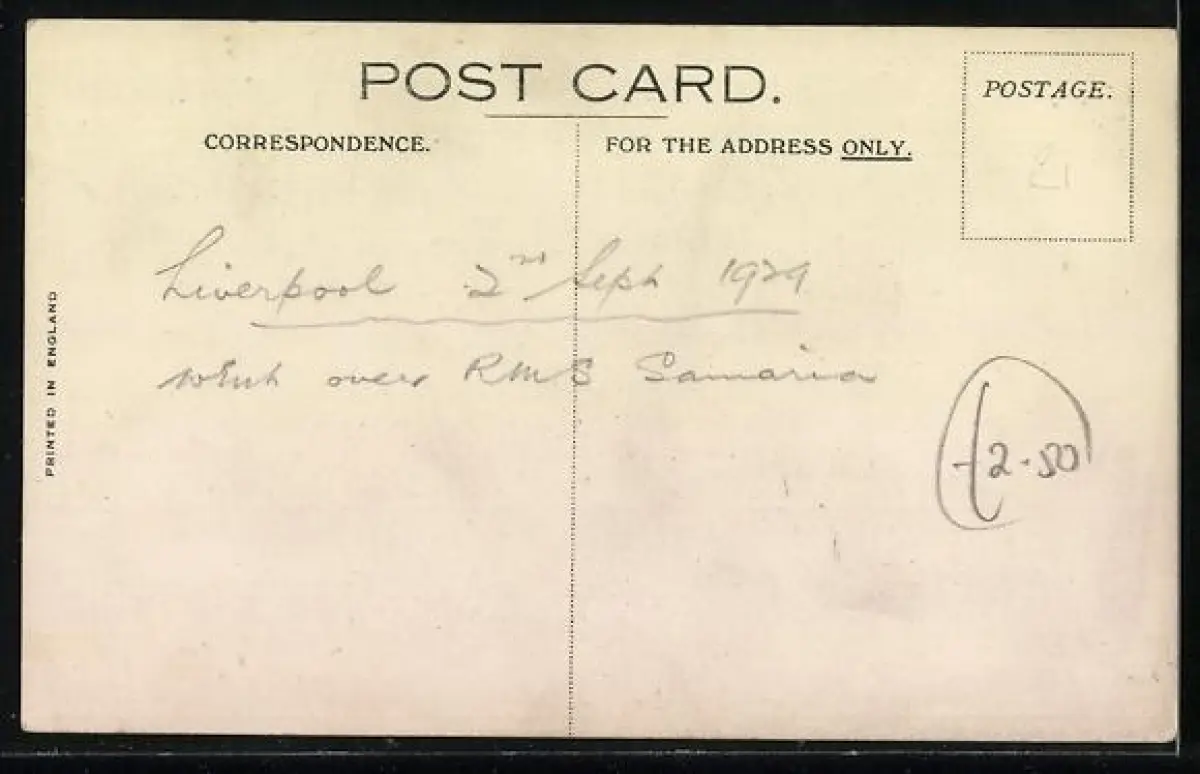 POST CARD.
CORRESPONDENCE.
FOR THE ADDRESS ONLY.
POSTAGE.
21
Liverpool 2nd Sept 1929
went over RMS Samaria
£2-50
PRINTED IN ENGLAND